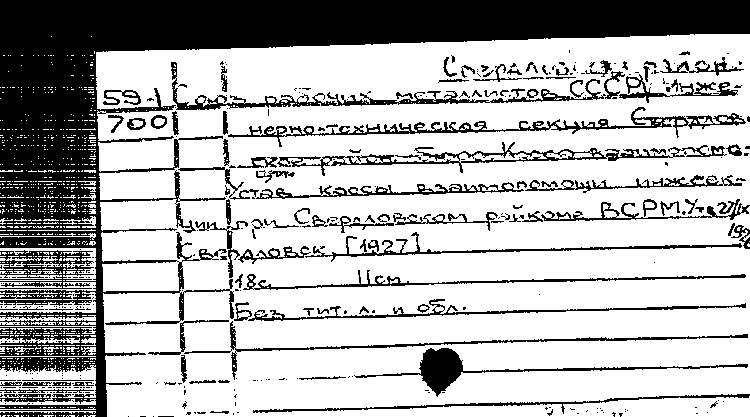 Свердловский район.
59-1 Союз рабочих металлистов СССР. Инже-
700 нерно-техническая секция Свердлов.
ский район. Бюро. Касса взаимопомо-
Устав кассы взаимопомощи инжсек-
ции при Свердловском райкоме ВСРМ. Утв. 27/IX
Свердловск, [1927].
18с. 11см.
Без тит. л. и обл.